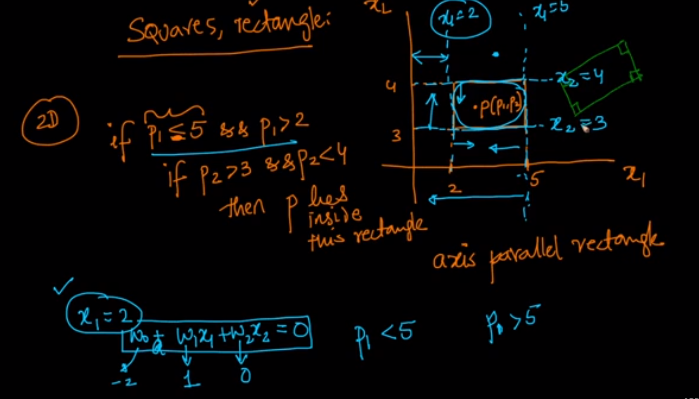 Squares, rectangle:
2D
if p₁ ≤ 5 && p₁ > 2
if p₂ > 3 && p₂ < 4
then p lies
inside
this rectangle
x₂
x₁ = 2
x₁ = 5
4
x₂ = 4
•p(p₁, p₂)
3
x₂ = 3
2
5
x₁
axis parallel rectangle
x₁ = 2
w₀ + w₁x₁ + w₂x₂ = 0
-2 1 0
p₁ < 5
p₁ > 5